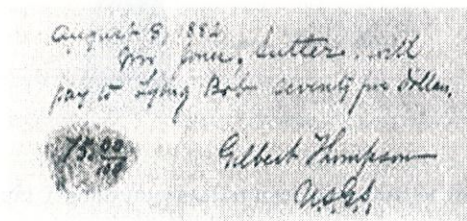 August 9, 1882
Mr Jones, Sutler, will
pay to Lying Bob seventy five dollars.
75 00/100
Gilbert Thompson
U.S.G.S.